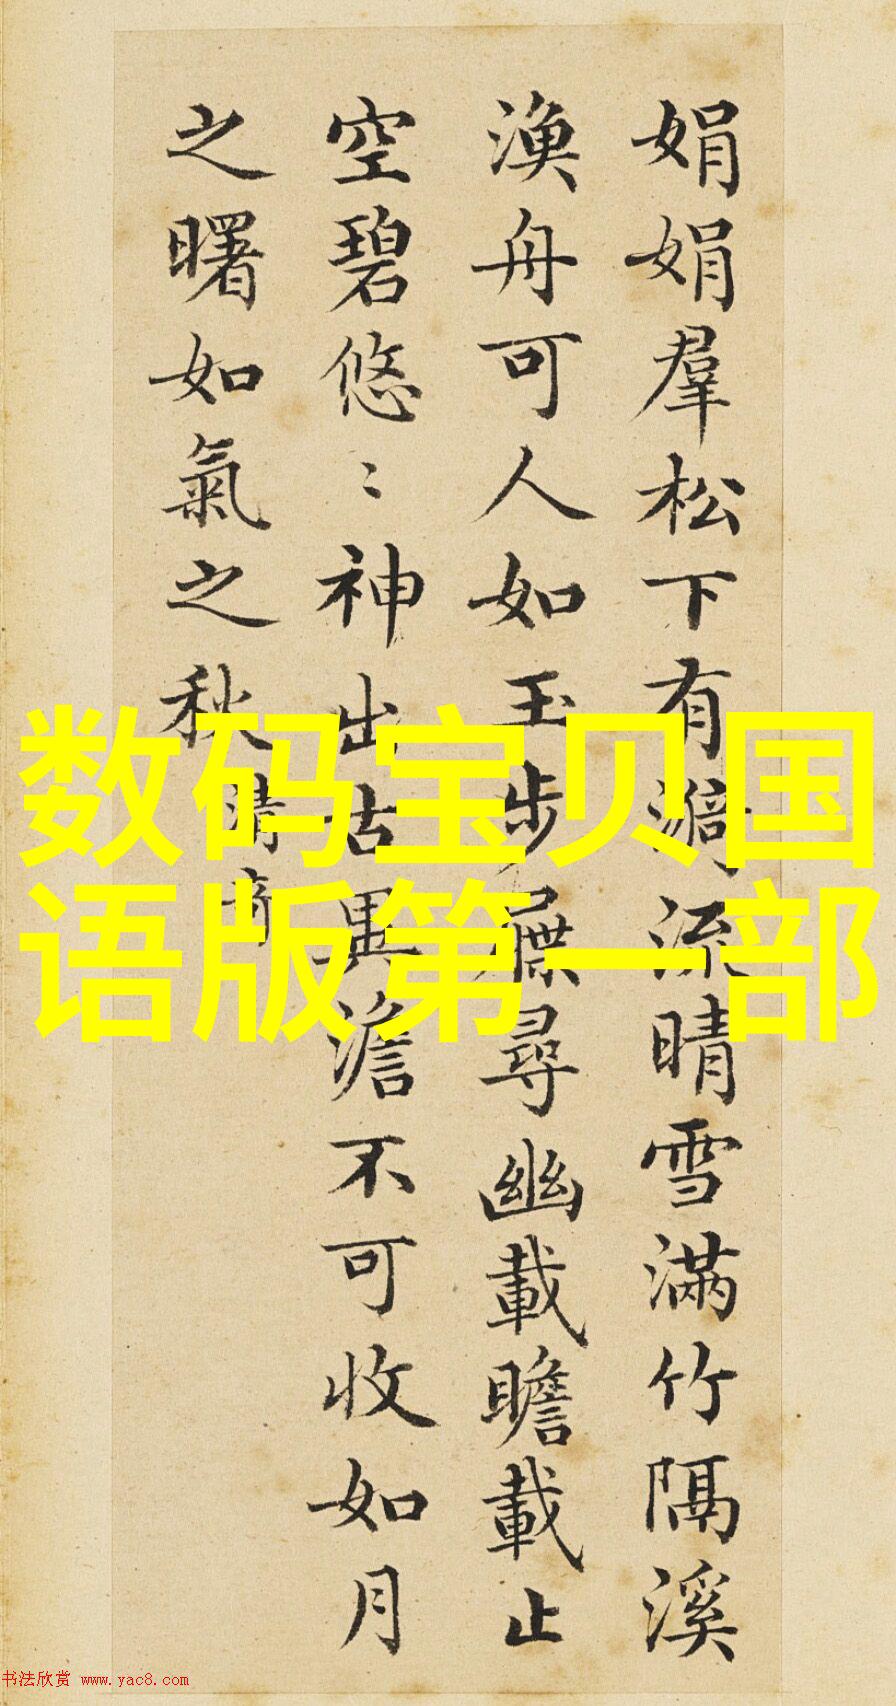 娟娟羣松下有漪流晴雪滿竹隔溪
渔舟可人如玉步屧尋幽載瞻載止
空碧悠〻神出古異澹不可收如月
之曙如氣之秋 清奇
数码宝贝国
语版第一部
书法欣赏 www.yac8.com